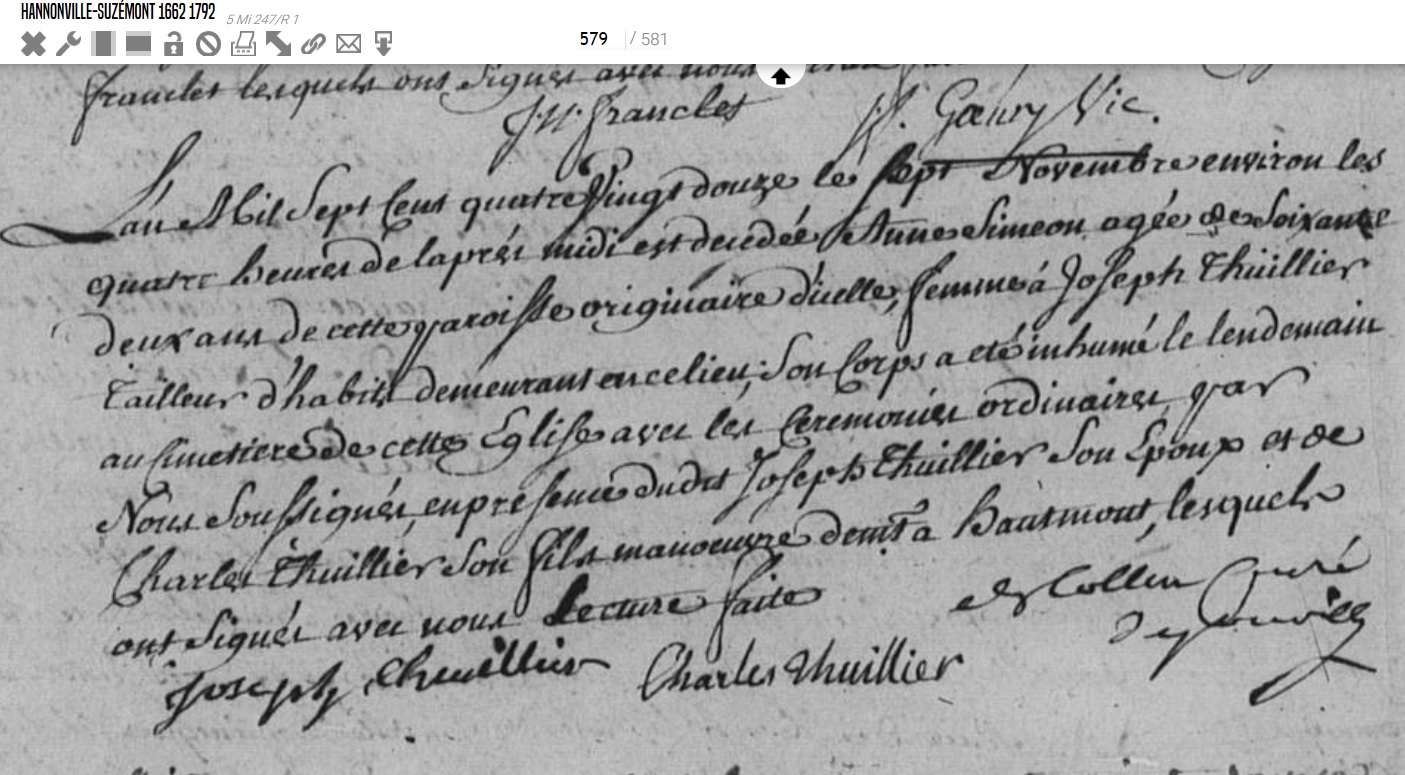 HANNONVILLE-SUZÉMONT 1662 1792 5 Mi 247/R 1
579 / 581
franclet lesquels ont Signés avec nous
franclet Gœury Vic.
Lan Mil Sept Cent quatre Vingt douze le Sept Novembre environ les
quatre heures de laprés midi est decedée Anne Simeon agée de Soixante
deux ans de cette paroisse originaire d'icelle, femme á Joseph Thuillier
Tailleur d'habits demeurant en ce lieu, Son Corps a eté inhumé le lendemain
au Cimetiere de cette Eglise avec les Ceremonies ordinaires par
Nous Soussignés, en presence dudit Joseph Thuillier Son Epoux et de
Charles Thuillier Son fils manoeuvre demt a hautmont, lesquels
ont Signés avec nous Lecture faite
Collin Curé
Joseph Thuillier Charles Thuillier